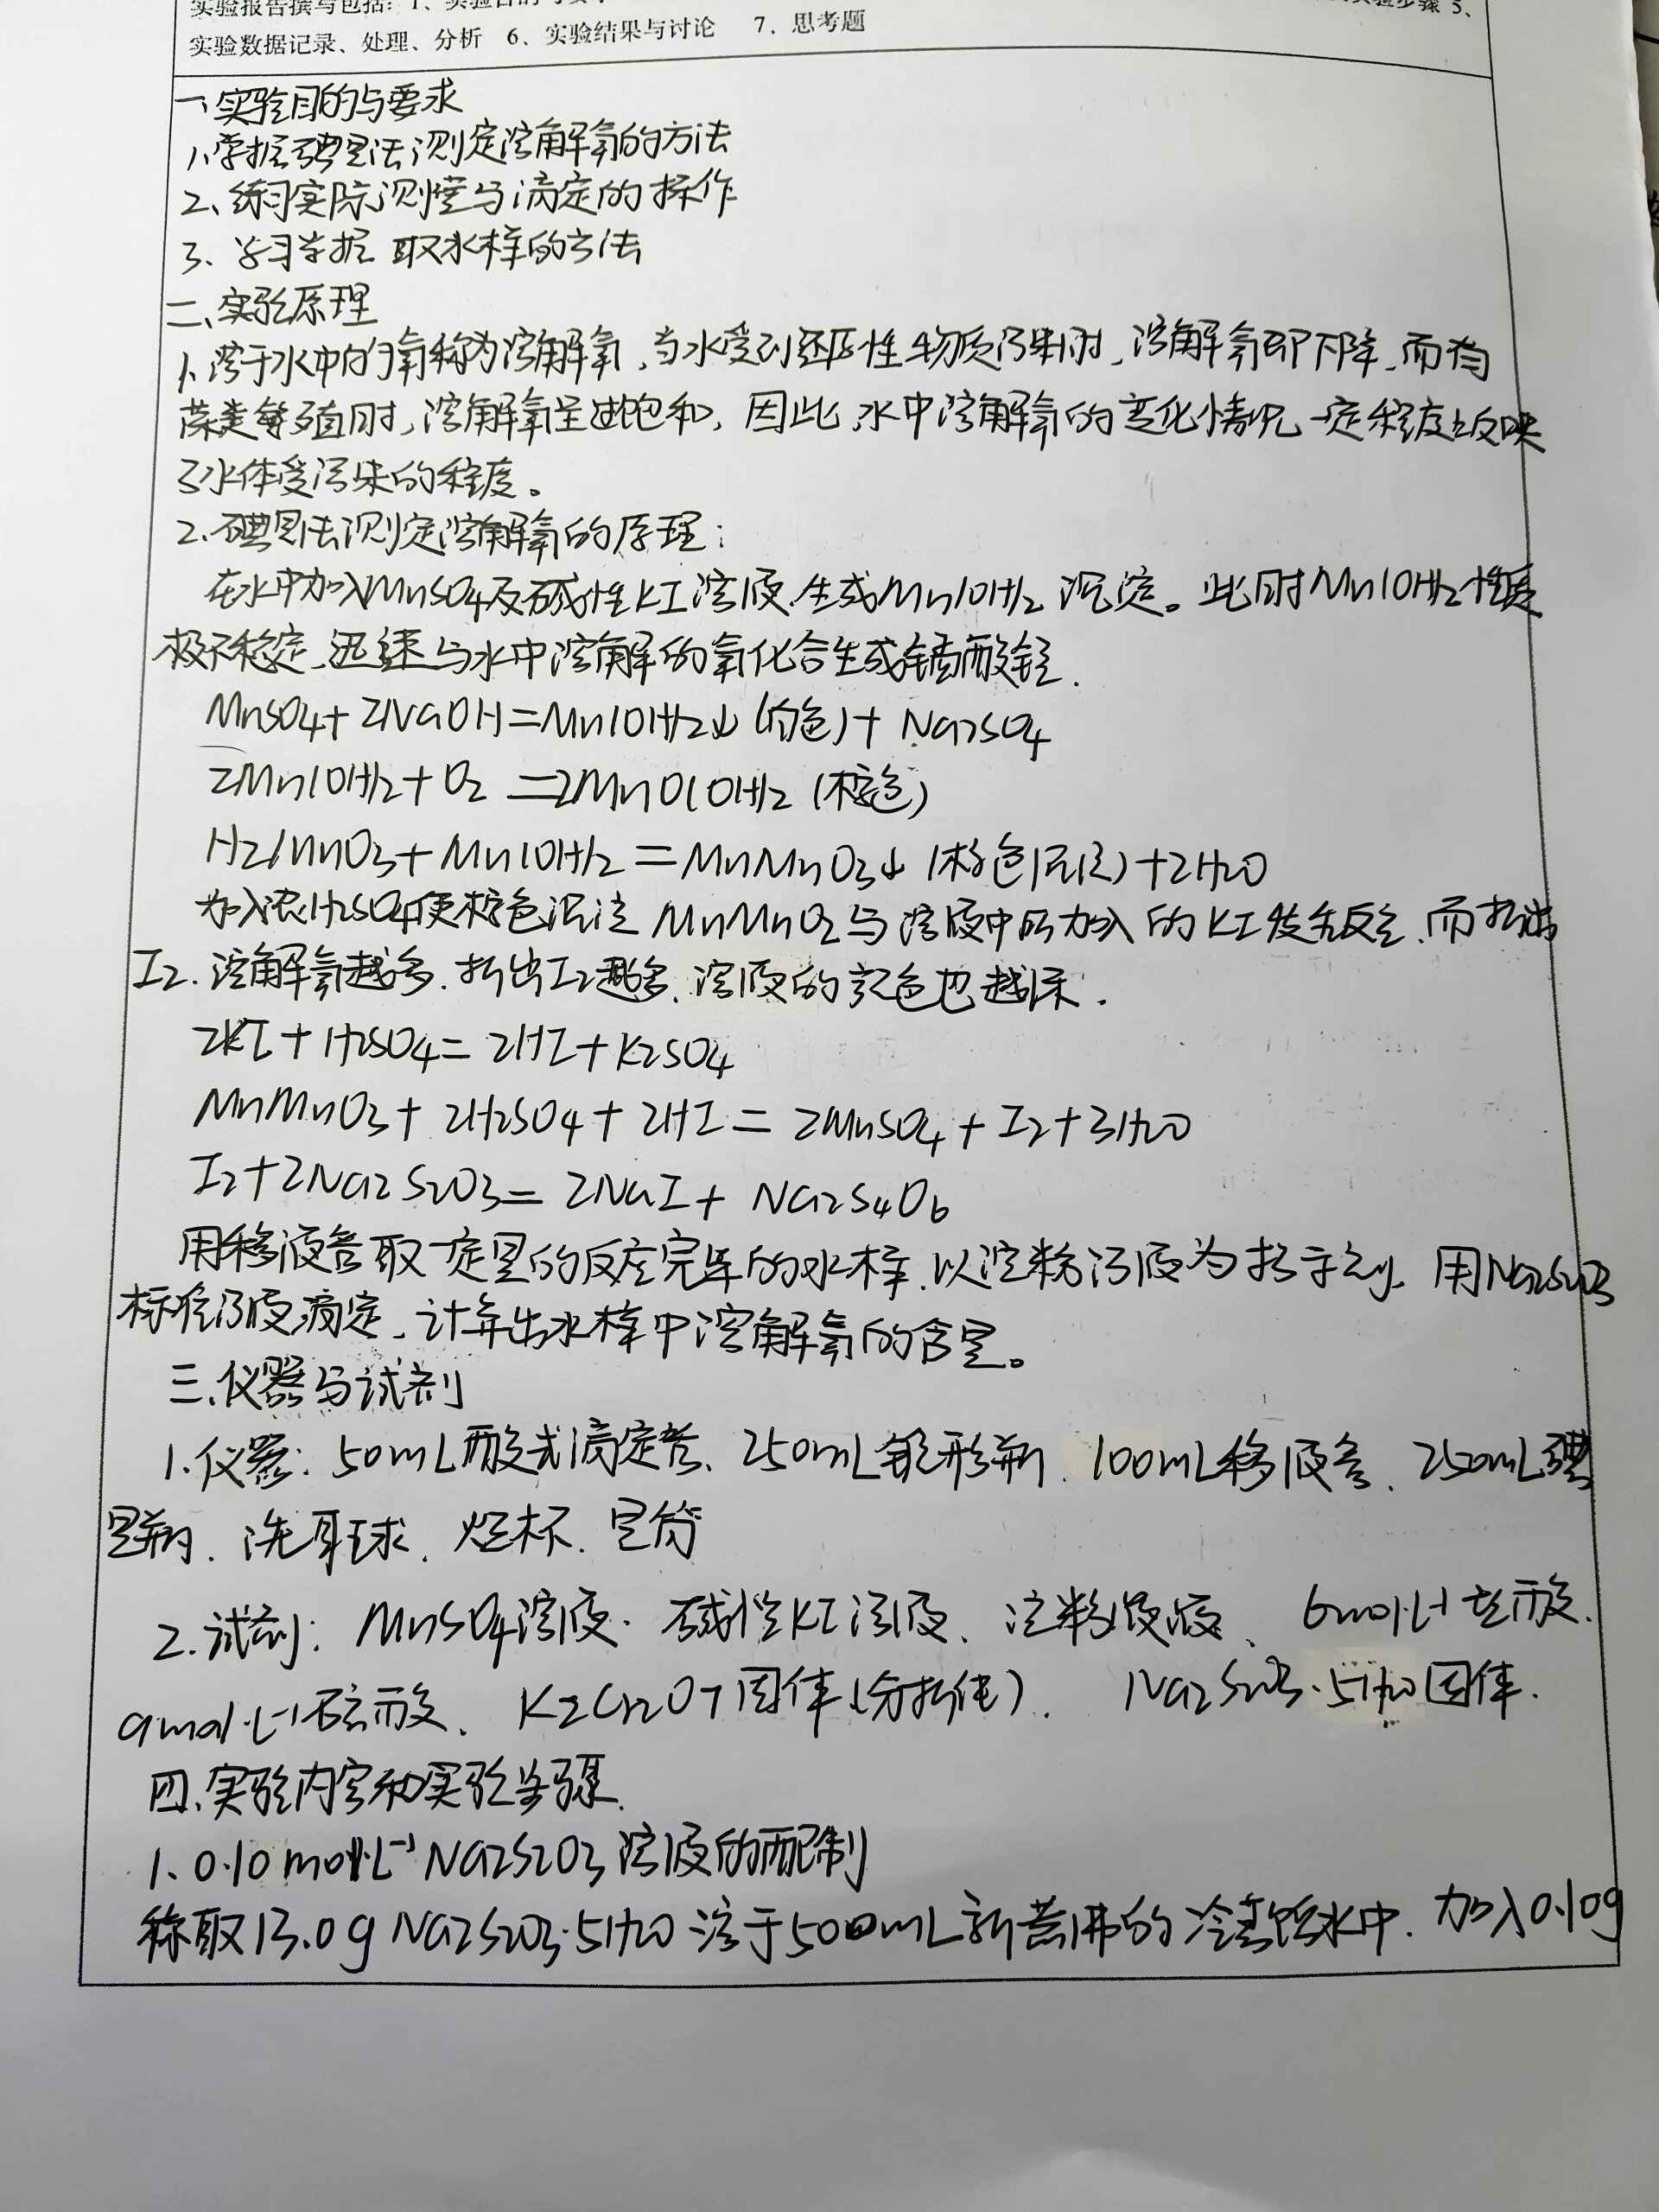 实验报告撰写包括：1、实验目的
实验步骤 5、
实验数据记录、处理、分析 6、实验结果与讨论 7、思考题
一、实验目的与要求
1、掌握碘量法测定溶解氧的方法
2、练习实际测定与滴定的操作
3、学习掌握取水样的方法
二、实验原理
1、溶于水中的氧称为溶解氧,当水受到还原性物质污染时,溶解氧即下降,而有
藻类繁殖时,溶解氧呈过饱和,因此,水中溶解氧的变化情况一定程度上反映
了水体受污染的程度。
2.碘量法测定溶解氧的原理：
在水中加入MnSO4及碱性KI溶液,生成Mn(OH)2沉淀。此时Mn(OH)2性质
极不稳定,迅速与水中溶解的氧化合生成锰酸锰.
MnSO4+2NaOH=Mn(OH)2↓(白色)+Na2SO4
2Mn(OH)2+O2=2MnO(OH)2(棕色)
H2MnO3+Mn(OH)2=MnMnO3↓(棕色沉淀)+2H2O
加入浓H2SO4使棕色沉淀MnMnO2与溶液中所加入的KI发生反应,而析出
I2.溶解氧越多.析出I2越多,溶液的颜色也越深.
2KI+H2SO4=2HI+K2SO4
MnMnO3+2H2SO4+2HI=2MnSO4+I2+3H2O
I2+2Na2S2O3=2NaI+Na2S4O6
用移液管取一定量的反应完毕的水样,以淀粉溶液为指示剂,用Na2S2O3
标准溶液滴定,计算出水样中溶解氧的含量。
三.仪器与试剂
1.仪器:50mL酸式滴定管、250mL锥形瓶、100mL移液管、250mL碘
量瓶、洗耳球、烧杯、量筒
2.试剂:MnSO4溶液、碱性KI溶液、淀粉溶液、6mol·L-1盐酸、
9mol·L-1硫酸、K2Cr2O7固体(分析纯)、Na2S2O3·5H2O固体.
四、实验内容和实验步骤.
1、0.10mol·L-1Na2S2O3溶液的配制
称取13.0gNa2S2O3·5H2O溶于500mL新煮沸的冷蒸馏水中.加入0.10g